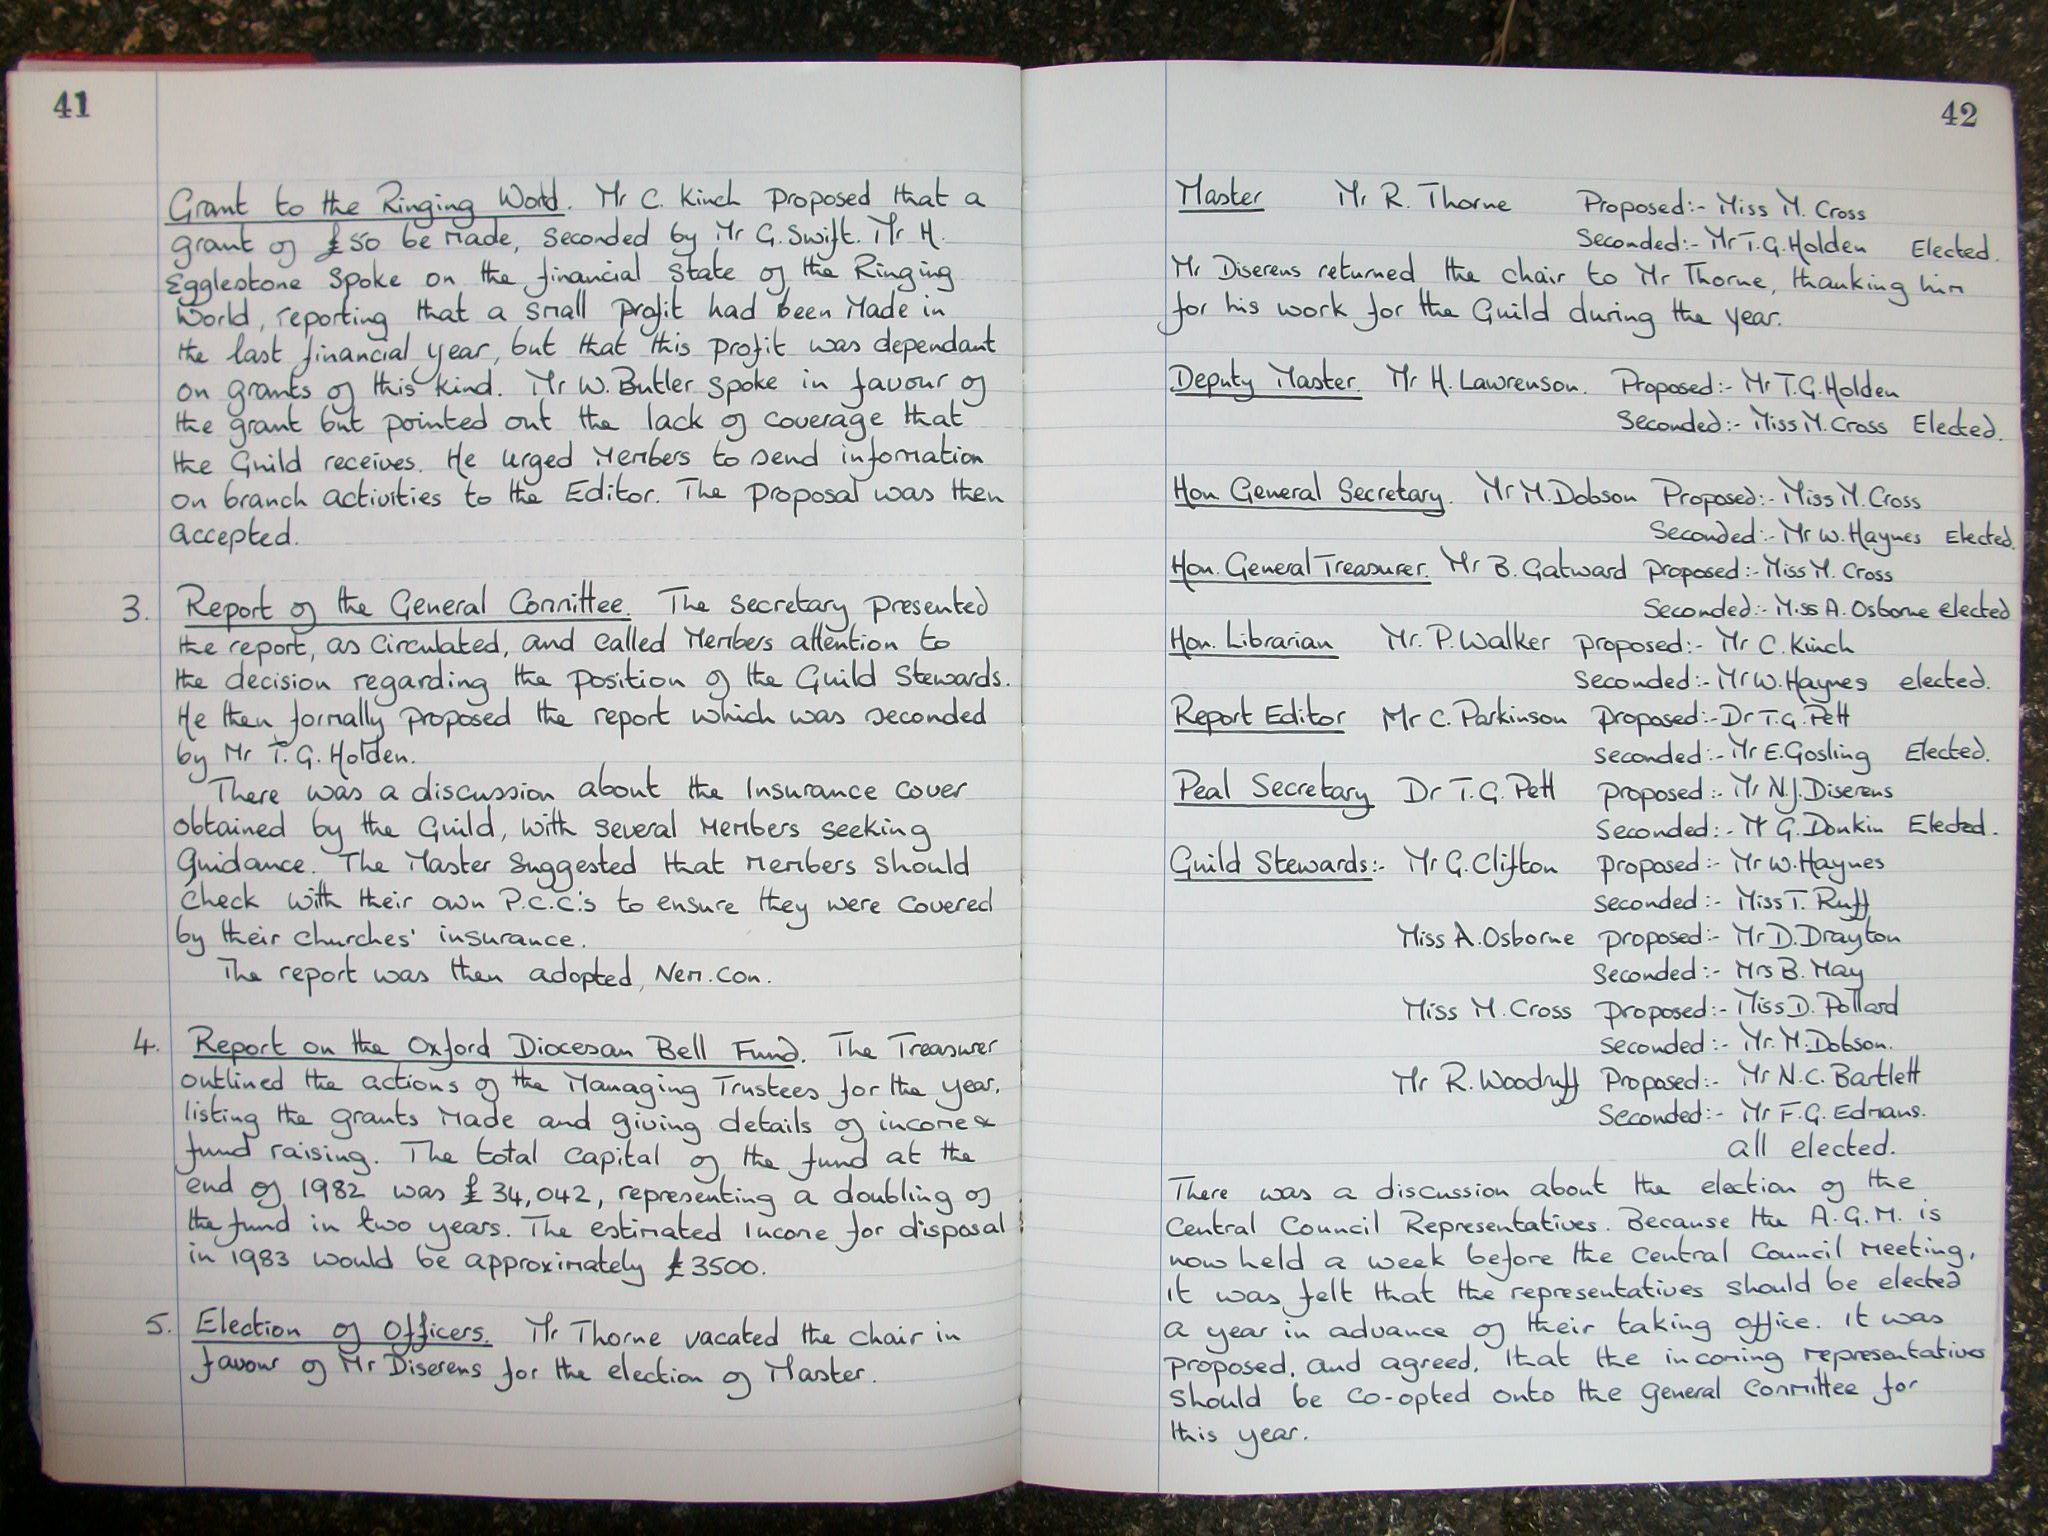 41
Grant to the Ringing World. Mr C. Kinch proposed that a
grant of £50 be made, seconded by Mr G. Swift. Mr H.
Egglestone spoke on the financial state of the Ringing
World, reporting that a small profit had been made in
the last financial year, but that this profit was dependant
on grants of this kind. Mr W. Butler spoke in favour of
the grant but pointed out the lack of coverage that
the Guild receives. He urged members to send information
on branch activities to the Editor. The proposal was then
accepted.
3. Report of the General Committee. The secretary presented
the report, as circulated, and called members attention to
the decision regarding the position of the Guild Stewards.
He then formally proposed the report which was seconded
by Mr T. G. Holden.
There was a discussion about the Insurance cover
obtained by the Guild, with several members seeking
guidance. The Master suggested that members should
check with their own P.C.C.'s to ensure they were covered
by their churches' insurance.
The report was then adopted, Nem. Con.
4. Report on the Oxford Diocesan Bell Fund. The Treasurer
outlined the actions of the Managing Trustees for the year,
listing the grants made and giving details of income &
fund raising. The total capital of the fund at the
end of 1982 was £34,042, representing a doubling of
the fund in two years. The estimated income for disposal
in 1983 would be approximately £3500.
5. Election of Officers. Mr Thorne vacated the chair in
favour of Mr Diserens for the election of Master.
42
Master Mr R. Thorne Proposed:- Miss M. Cross
Seconded:- Mr T.G. Holden Elected.
Mr Diserens returned the chair to Mr Thorne, thanking him
for his work for the Guild during the year.
Deputy Master. Mr H. Lawrenson. Proposed:- Mr T.G. Holden
Seconded:- Miss M. Cross Elected.
Hon General Secretary. Mr M. Dobson Proposed:- Miss M. Cross
Seconded:- Mr W. Haynes Elected.
Hon. General Treasurer. Mr B. Gatward proposed:- Miss M. Cross
Seconded:- Miss A. Osborne elected
Hon. Librarian Mr. P. Walker proposed:- Mr C. Kinch
Seconded:- Mr W. Haynes elected.
Report Editor Mr C. Parkinson proposed:- Dr T.G. Pett
Seconded:- Mr E. Gosling Elected.
Peal Secretary Dr T.G. Pett proposed:- Mr N.J. Diserens
Seconded:- M G. Donkin Elected.
Guild Stewards:- Mr G. Clifton proposed:- Mr W. Haynes
Seconded:- Miss T. Ruff
Miss A. Osborne proposed:- Mr D. Drayton
Seconded:- Mrs B. May
Miss M. Cross proposed:- Miss D. Pollard
Seconded:- Mr. M. Dobson.
Mr R. Woodruff Proposed:- Mr N.C. Bartlett
Seconded:- Mr F.G. Edmans.
all elected.
There was a discussion about the election of the
Central Council Representatives. Because the A.G.M. is
now held a week before the Central Council meeting,
it was felt that the representatives should be elected
a year in advance of their taking office. It was
proposed, and agreed, that the incoming representatives
should be co-opted onto the General Committee for
this year.